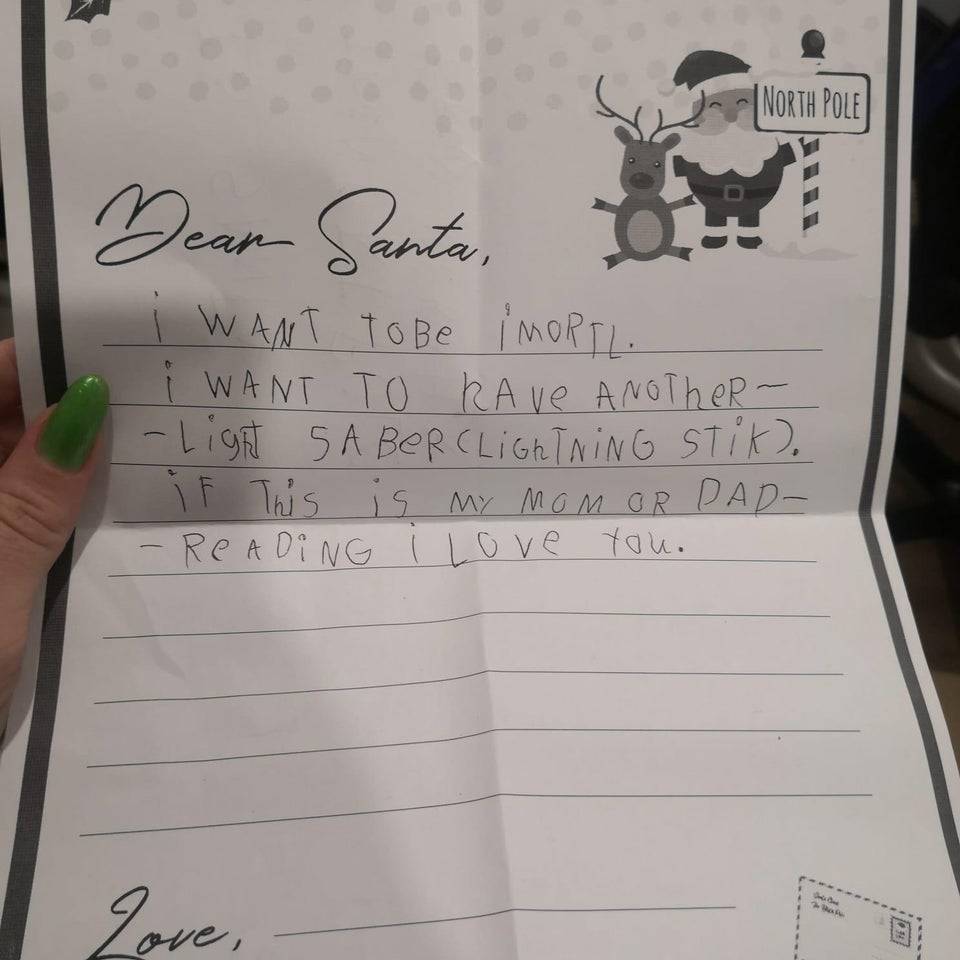 NORTH POLE
Dear Santa,
i WANT TOBe iMORTL.
i WANT TO hAve ANOTheR-
-LighT SABeR(LighTNiNG STiK).
iF This is MY MOM OR DAD-
- ReADiNG i LOVe You.
Love,